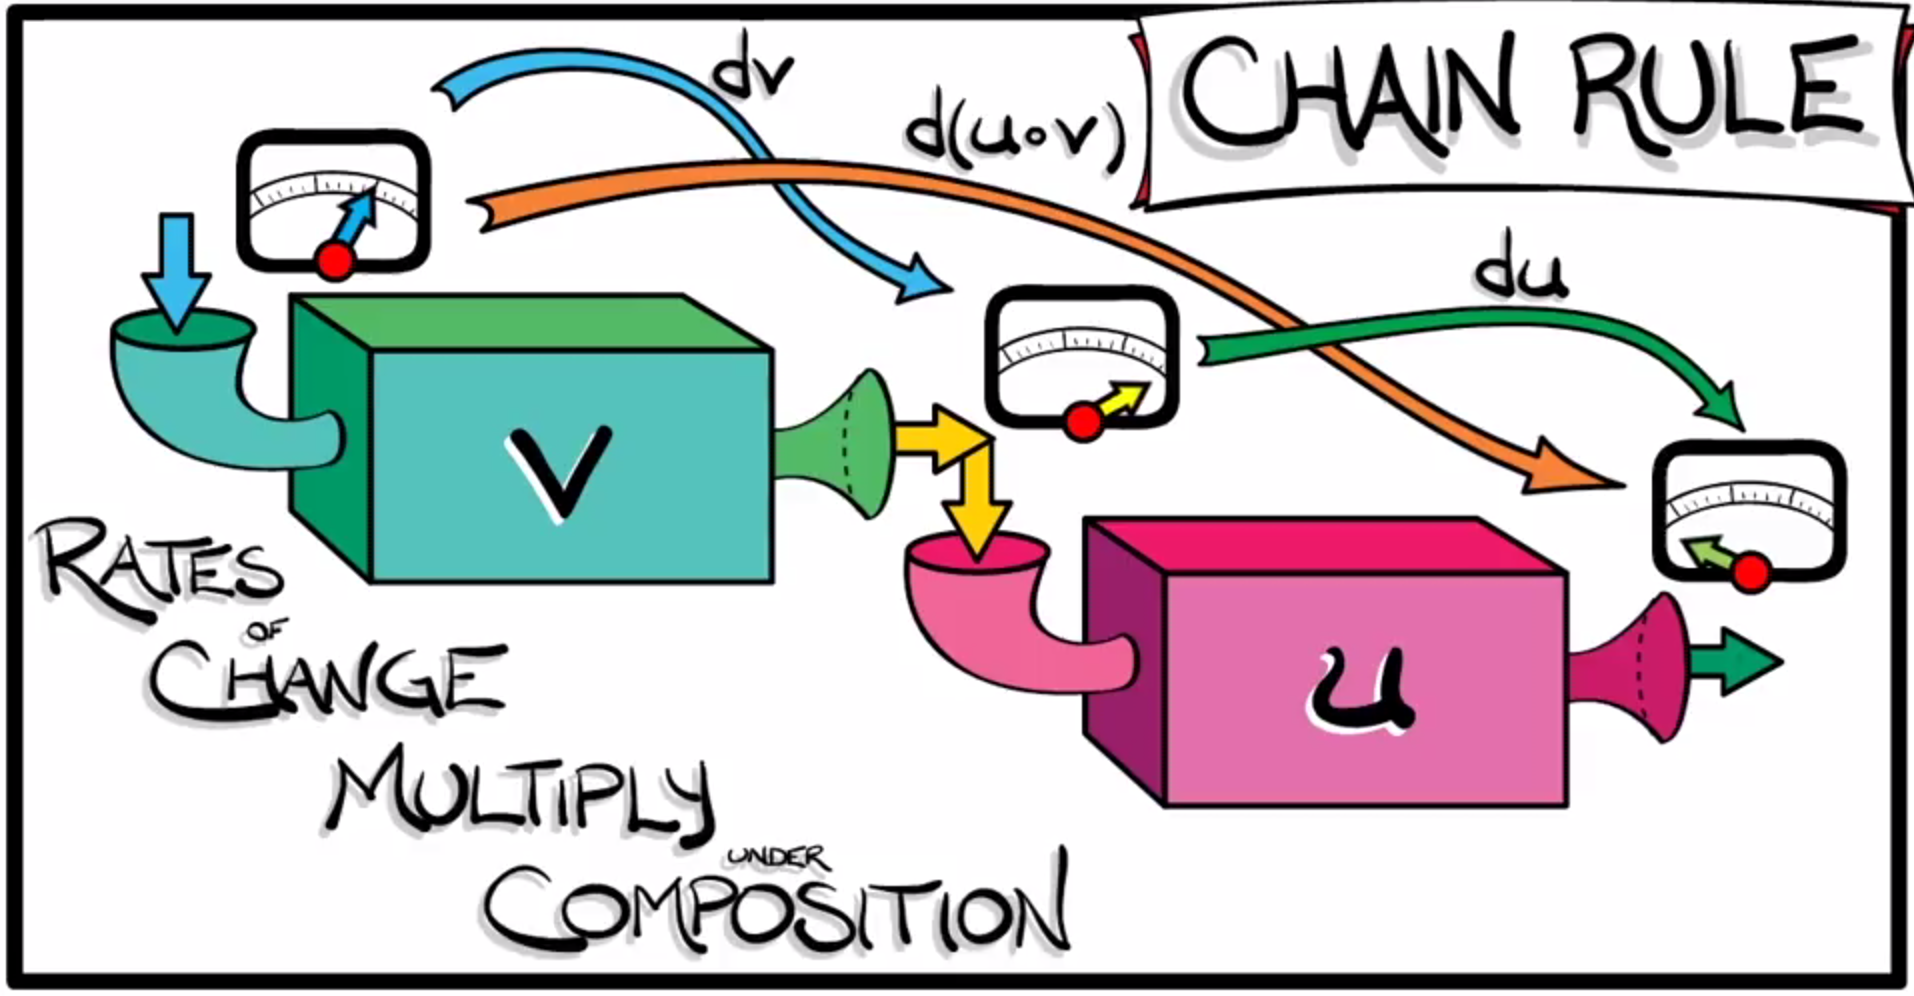 CHAIN RULE
dv
d(u∘v)
du
v
u
RATES
OF
CHANGE
MULTIPLY
UNDER
COMPOSITION